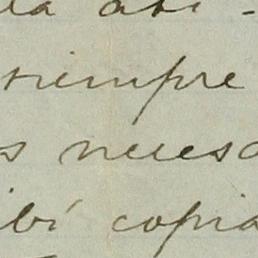 la asi -
siempre
s necesa
ibí copia